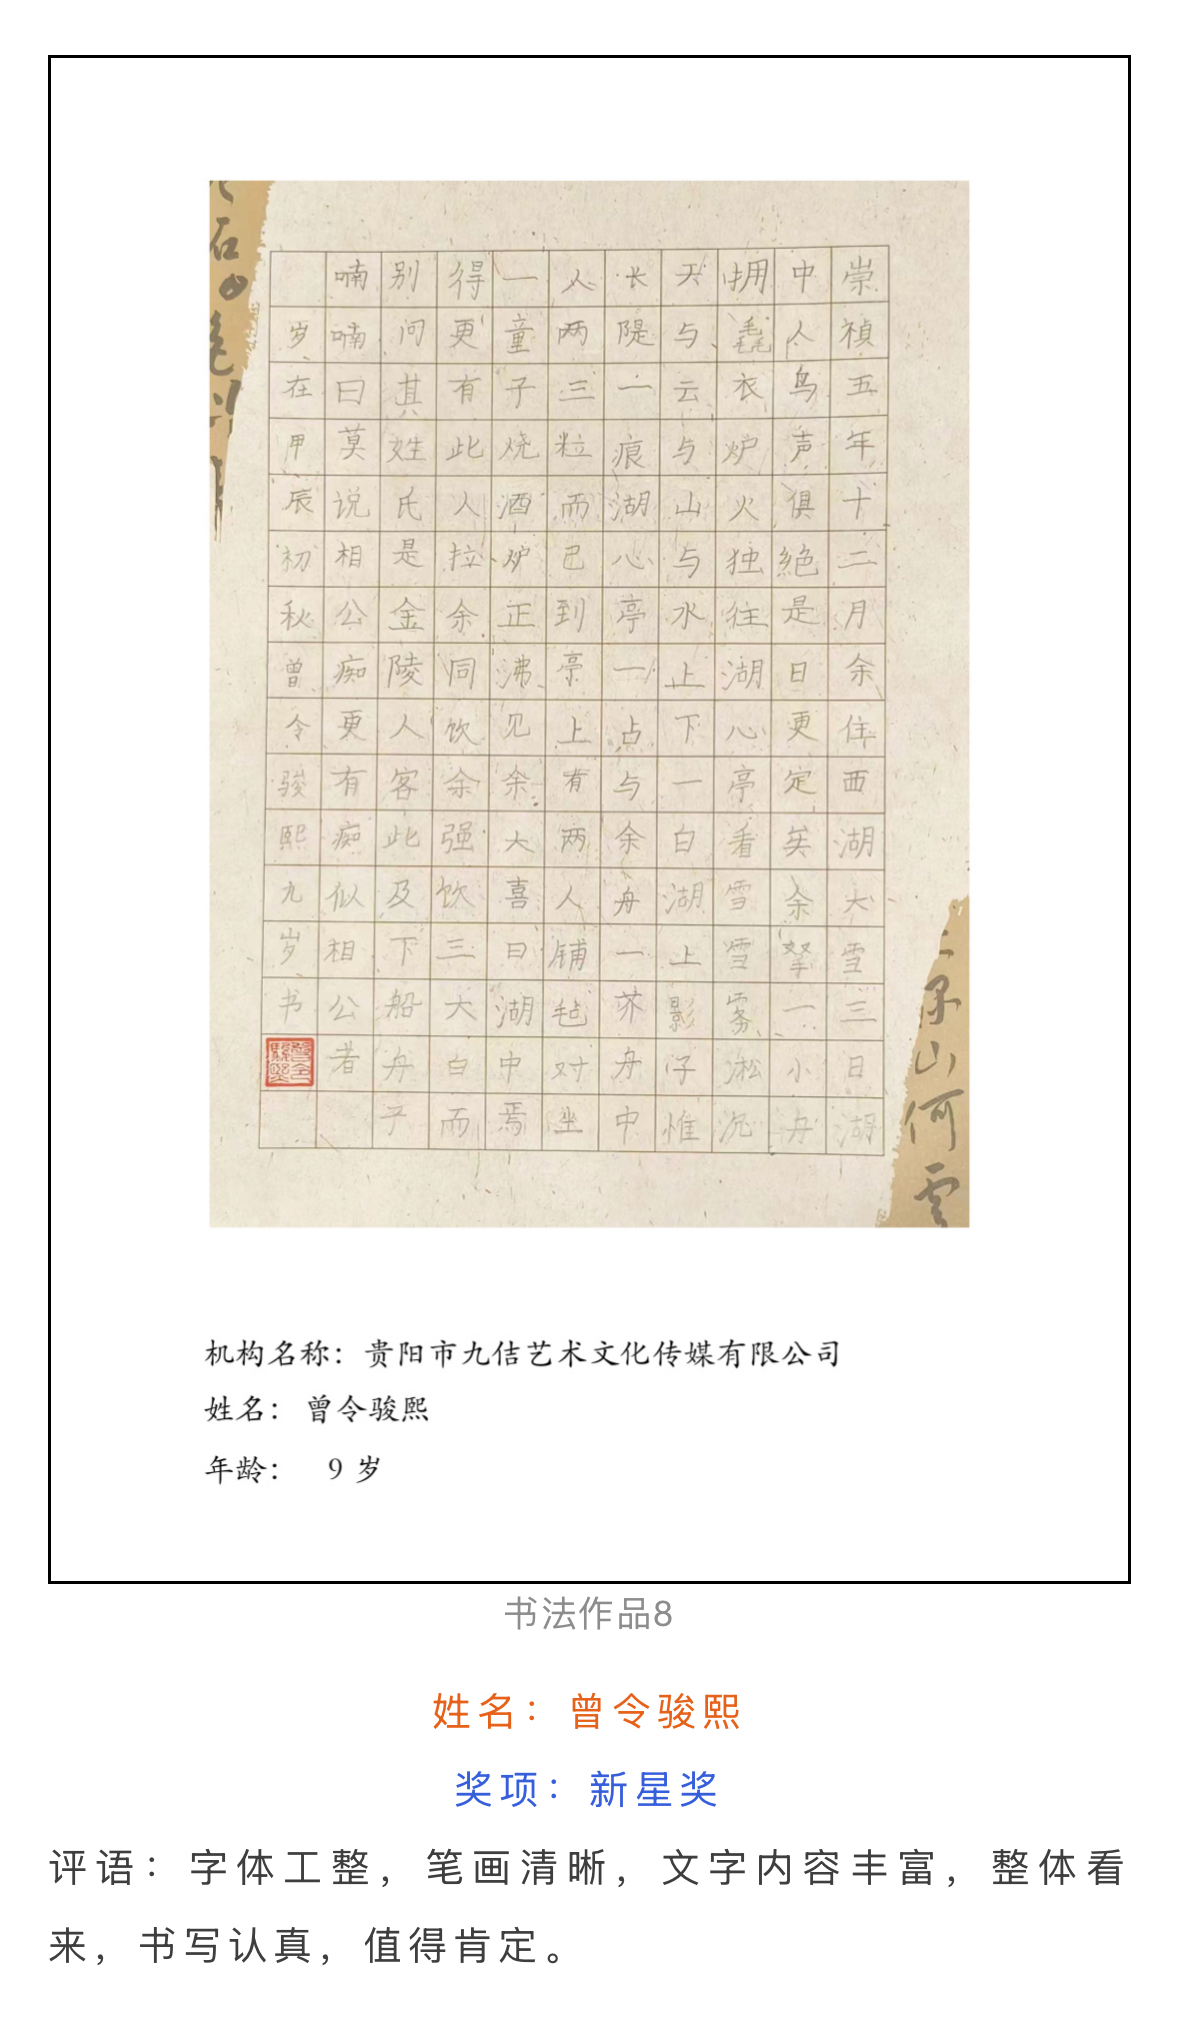 崇禎五年十二月余住西湖大雪三日湖
中人鸟声俱絶是日更定矣余拏一小舟
拥毳衣炉火独往湖心亭看雪雪雾凇沆
天与云与山与水上下一白湖上影仔惟
长隄一痕湖心亭一占与余舟一芥舟中
人两三粒而已到亭上有两人铺毡对坐
一童子烧酒炉正沸见余大喜曰湖中焉
得更有此人拉余同饮余强饮三大白而
别问其姓氏是金陵人客此及下船舟子
喃喃曰莫说相公痴更有痴似相公者
岁在甲辰初秋曾令骏熙九岁书
山何
机构名称：贵阳市九佶艺术文化传媒有限公司
姓名：曾令骏熙
年龄：9 岁
书法作品8
姓名：曾令骏熙
奖项：新星奖
评语：字体工整，笔画清晰，文字内容丰富，整体看
来，书写认真，值得肯定。